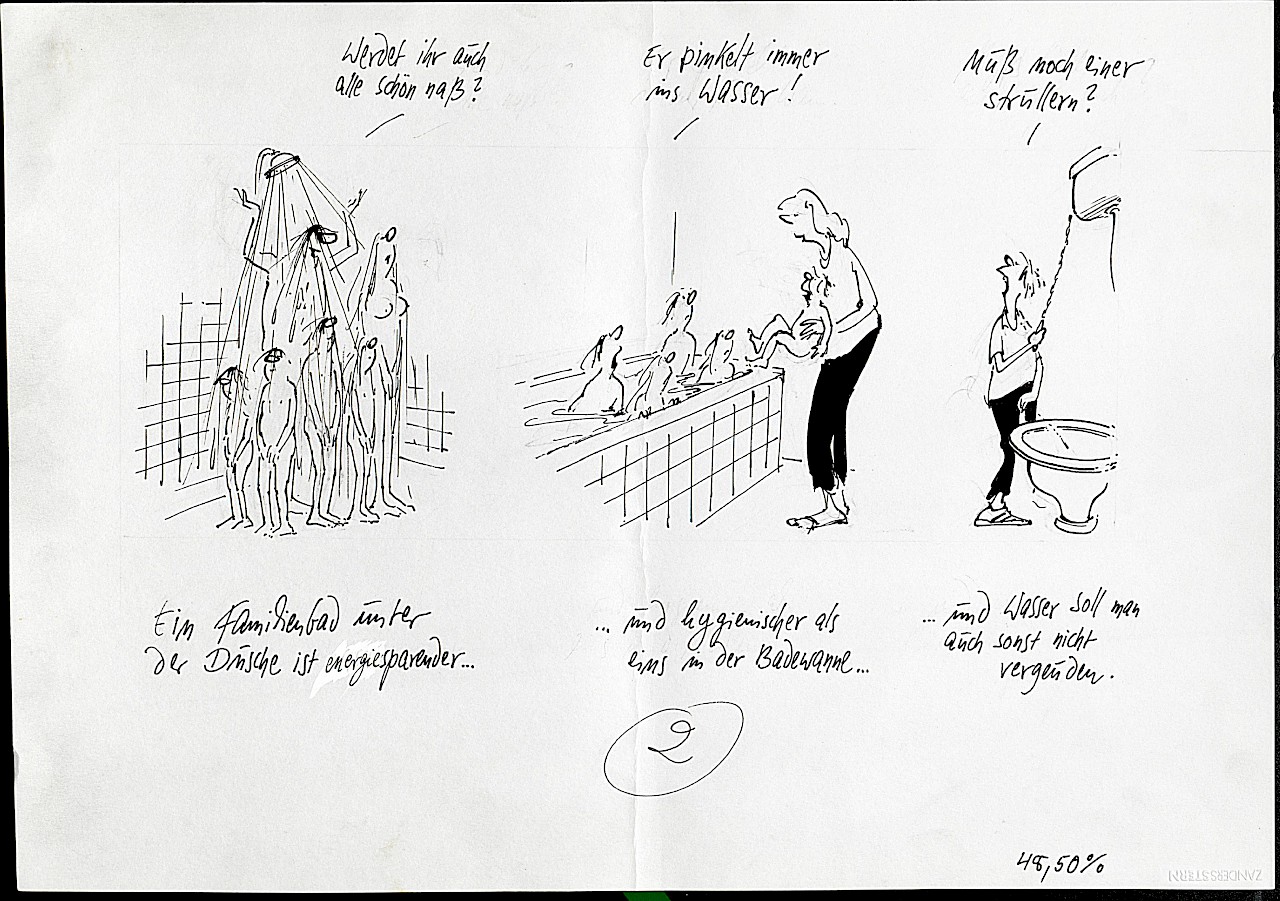 Werdet ihr auch
alle schön naß?
Er pinkelt immer
ins Wasser!
Muß noch einer
strullern?
Ein Familienbad unter
der Dusche ist energiesparender...
... und hygienischer als
eins in der Badewanne...
... und Wasser soll man
auch sonst nicht
vergeuden.
2
48,50%
ZANDERSSTERN